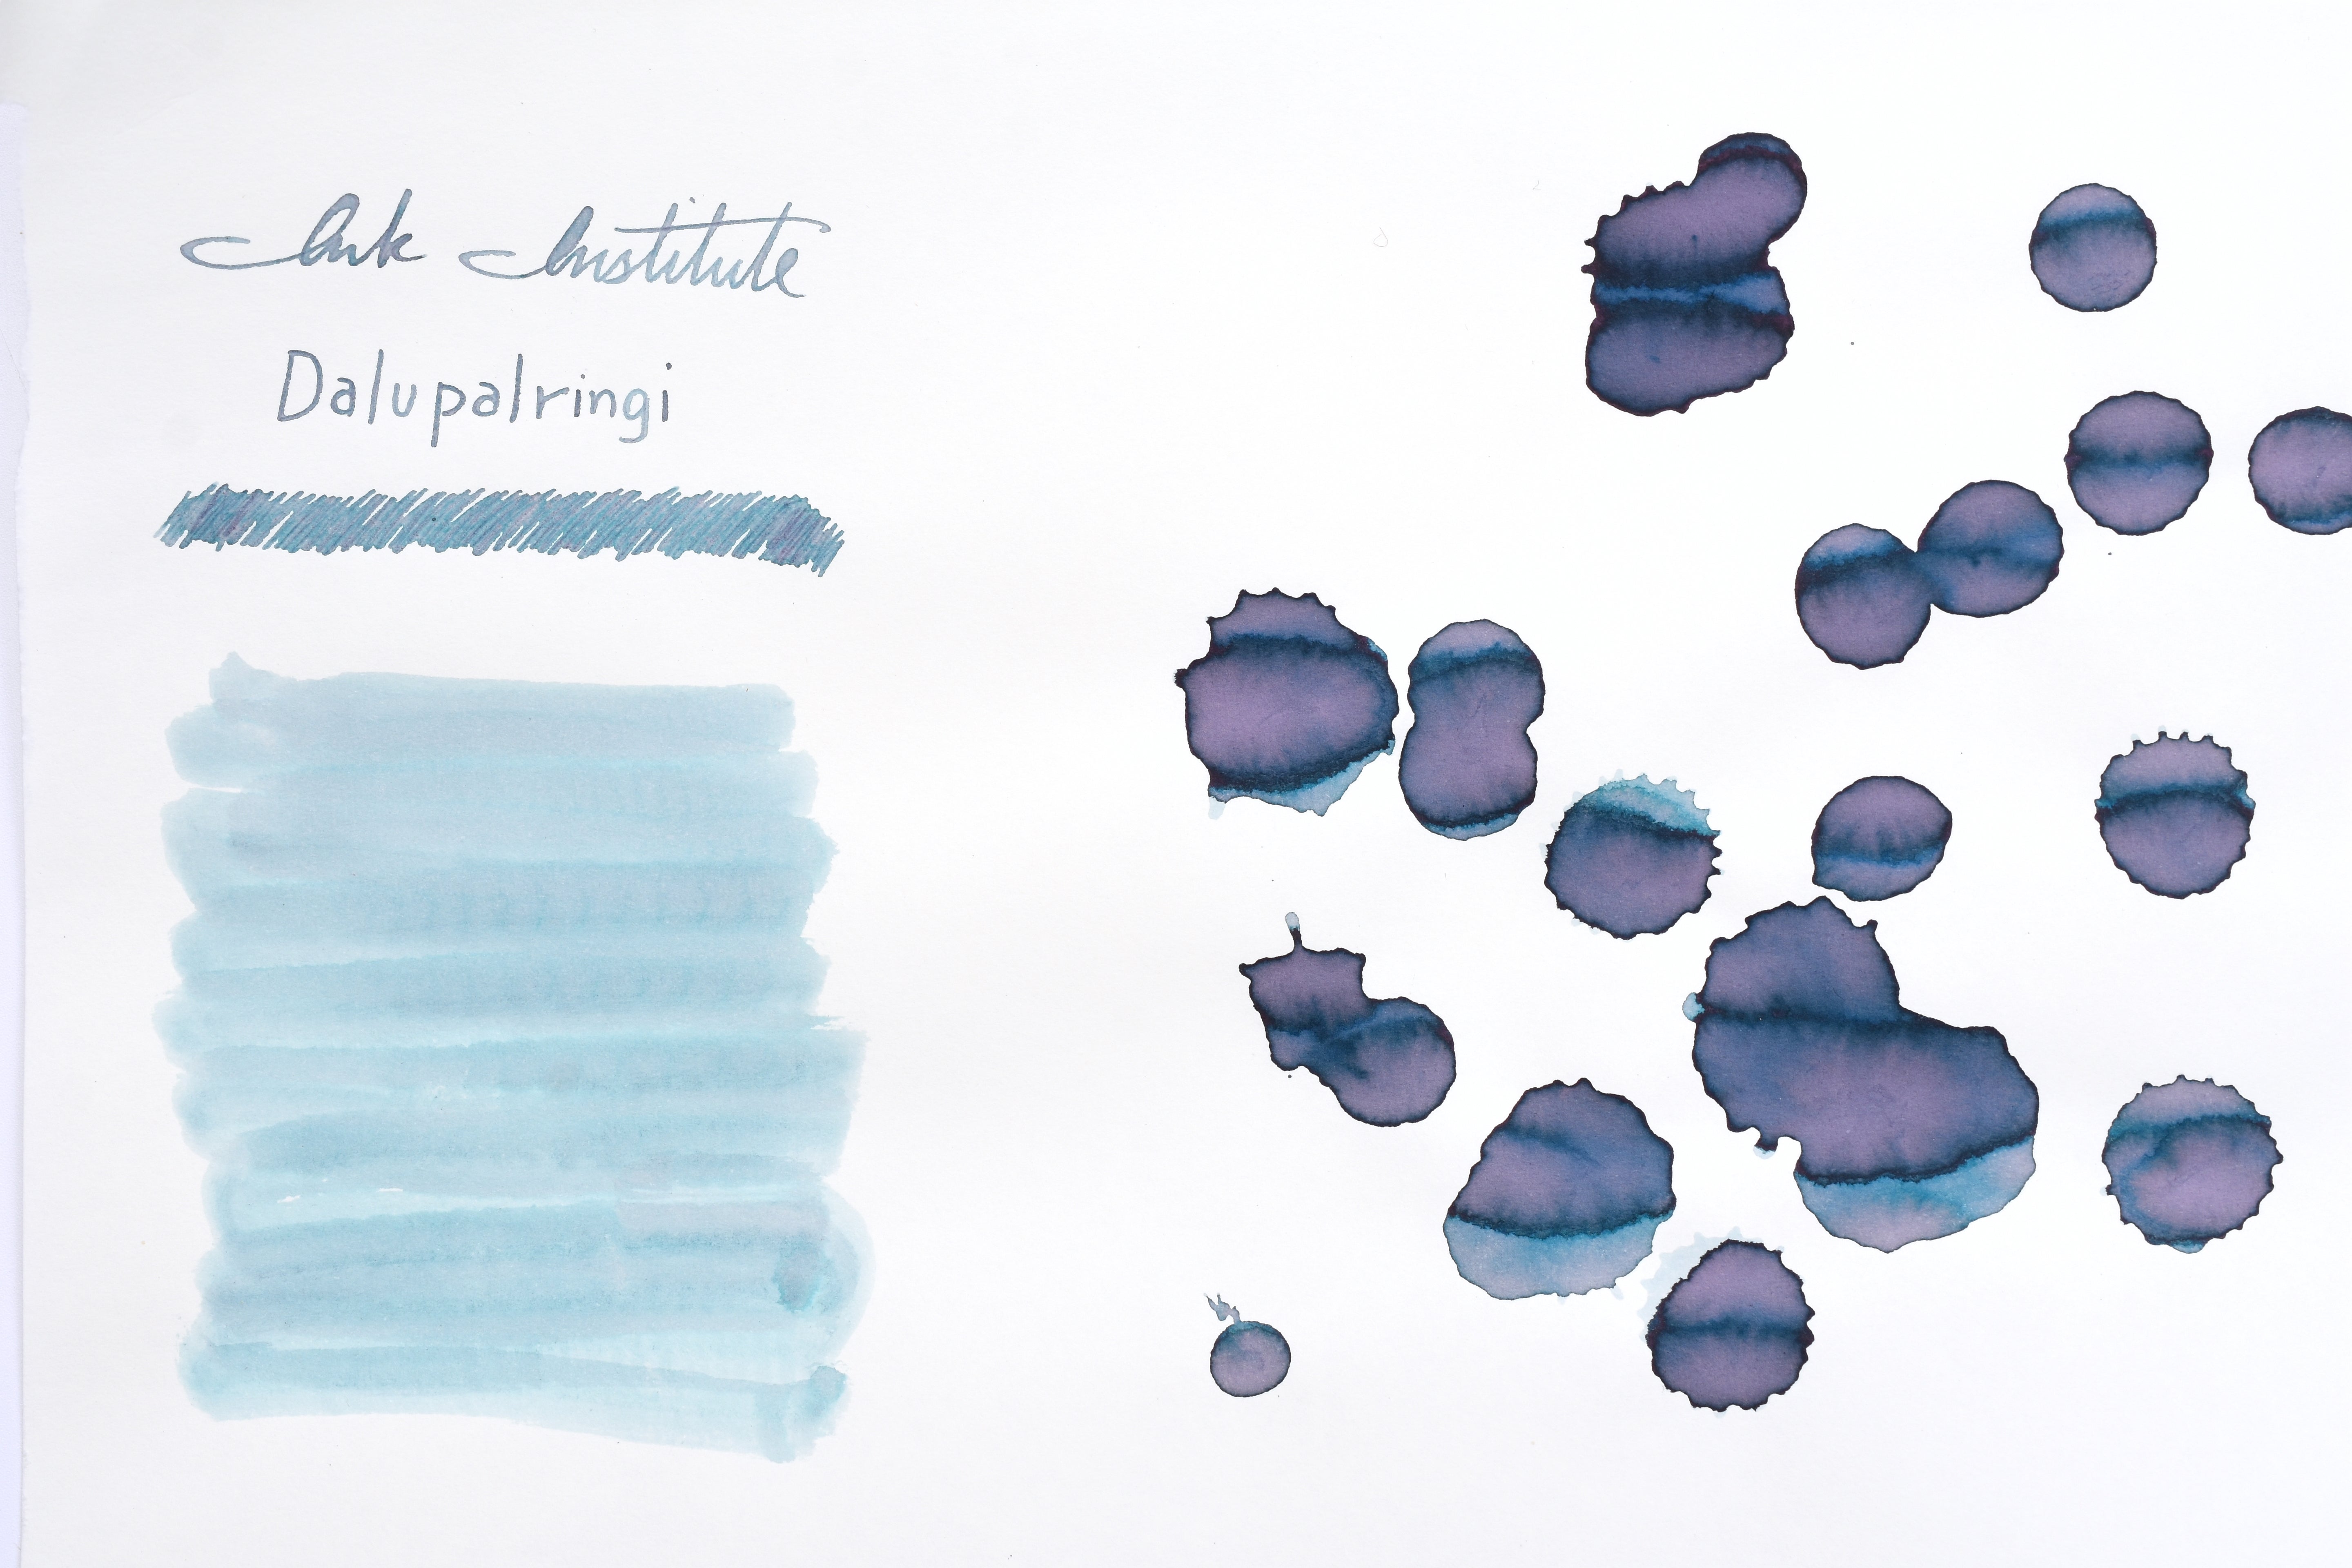 Ink Institute
Dalupalringi